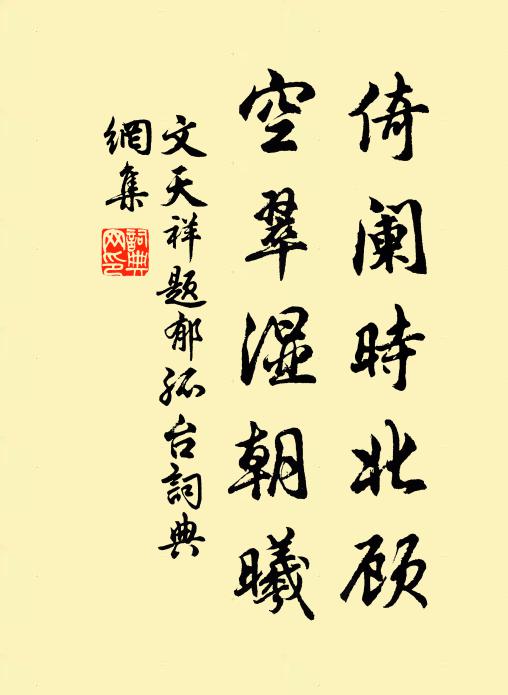 倚阑時北顾
空翠湿朝曦
文天祥题郁孤台詞典
網集
詞典
网印